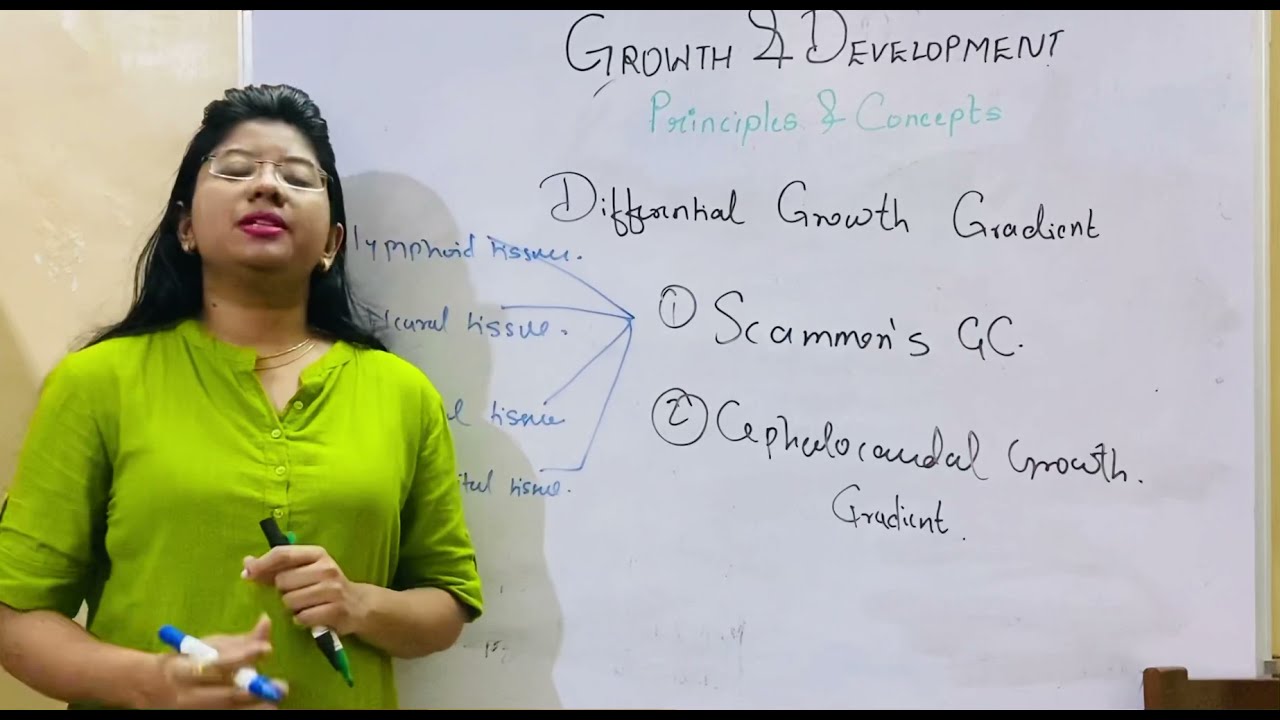 GROWTH & DEVELOPMENT
Principles & Concepts
Differential Growth Gradient
lymphoid tissue.
Neural tissue.
tissue
tissue.
① Scammon's GC.
② Cephalocaudal Growth.
Gradient.